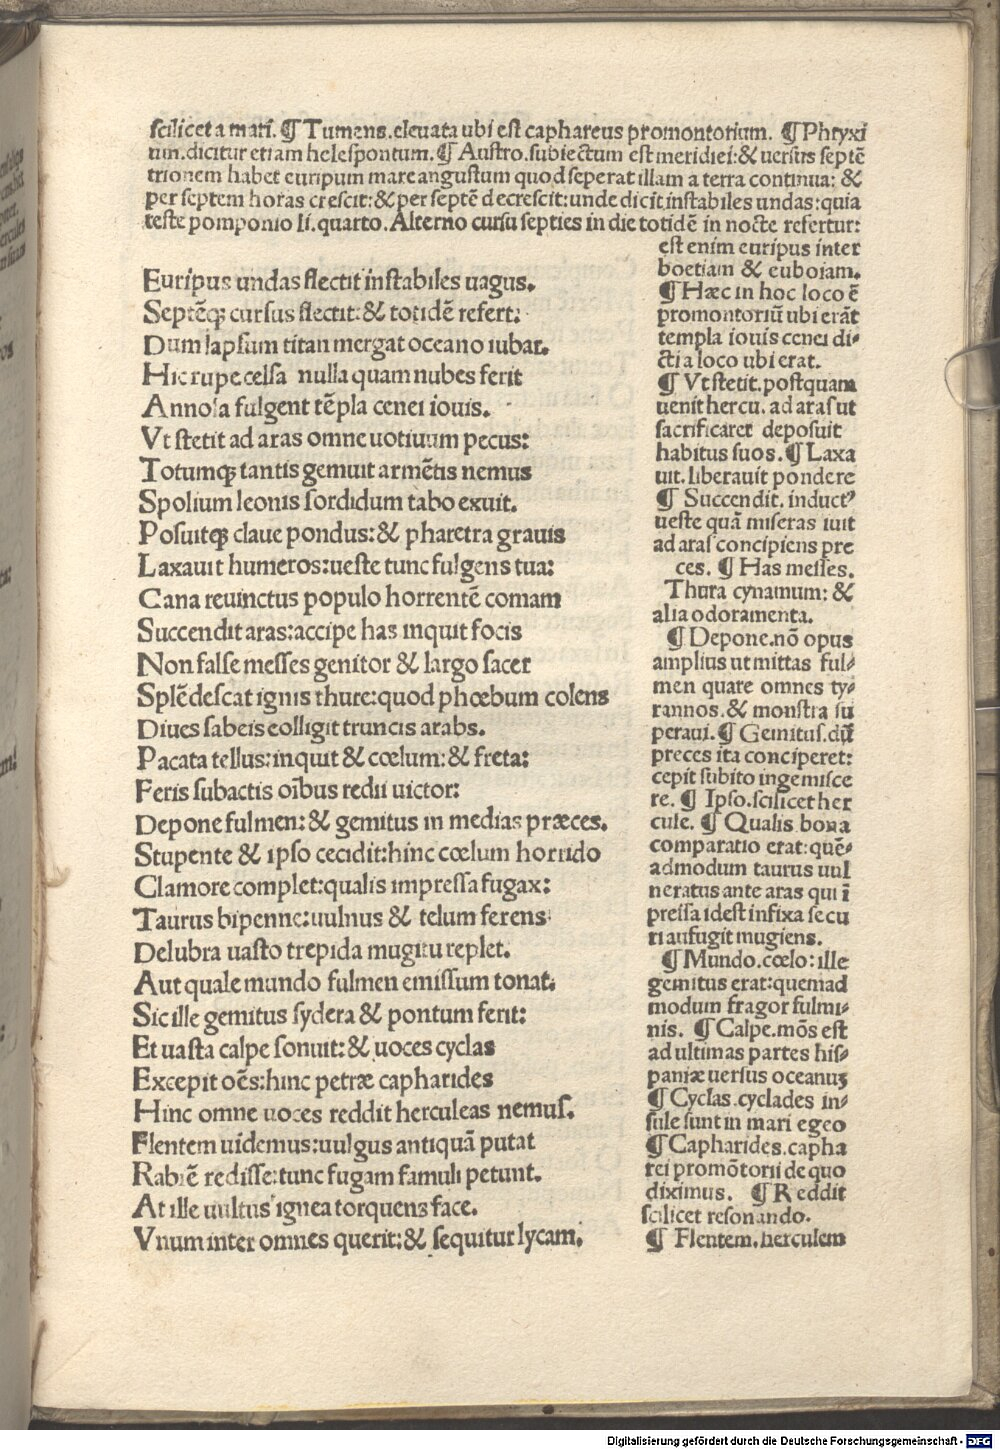 scilicet a mari. ¶ Tumens. eleuata ubi est caphareus promontorium. ¶ Phryxi
um. dicitur etiam helespontum. ¶ Austro. subiectum est meridiei: & uersus septē
trionem habet euripum mare angustum quod seperat illam a terra continua: &
per septem horas crescit: & per septē decrescit: unde dicit instabiles undas: quia
teste pomponio li. quarto. Alterno cursu septies in die totidē in nocte refertur:
est enim euripus inter
boetiam & euboiam.
¶ Hæc in hoc loco ē
promontoriū ubi erāt
templa iouis cenei di-
cti a loco ubi erat.
¶ Vt stetit. postquam
uenit hercu. ad aras ut
sacrificaret deposuit
habitus suos. ¶ Laxa
uit. liberauit pondere
¶ Succendit. induct⁹
ueste quā miseras iuit
ad aras concipiens pre
ces. ¶ Has messes.
Thura cynamum: &
alia odoramenta.
¶ Depone. nō opus
amplius ut mittas ful-
men quare omnes ty-
rannos. & monstra su
peraui. ¶ Gemitus. dū
preces ita conciperet:
cepit subito ingemisce
re. ¶ Ipso. scilicet her
cule. ¶ Qualis bona
comparatio erat: quē-
admodum taurus uul
neratus ante aras qui ī
pressa idest infixa secu
ri aufugit mugiens.
¶ Mundo. cœlo: ille
gemitus erat: quemad
modum fragor fulmi-
nis. ¶ Calpe. mōs est
ad ultimas partes his-
paniæ uersus oceanuꝫ
¶ Cyclas. cyclades in-
sule sunt in mari egeo
¶ Capharides. capha
rei promōtorii de quo
diximus. ¶ Reddit
scilicet resonando.
¶ Flentem. herculem
Euripus undas flectit instabiles uagus.
Septēqꝫ cursus flectit: & totidē refert:
Dum lapsum titan mergat oceano iubar.
Hic rupe celsa nulla quam nubes ferit
Annosa fulgent tēpla cenei iouis.
Vt stetit ad aras omne uotiuum pecus:
Totumqꝫ tantis gemuit armētis nemus
Spolium leonis sordidum tabo exuit.
Posuitqꝫ claue pondus: & pharetra grauis
Laxauit humeros: ueste tunc fulgens tua:
Cana reuinctus populo horrentē comam
Succendit aras: accipe has inquit focis
Non false messes genitor & largo sacer
Splēdescat ignis thure: quod phœbum colens
Diues sabeis colligit truncis arabs.
Pacata tellus: inquit & cœlum: & freta:
Feris subactis oībus redii uictor:
Depone fulmen: & gemitus in medias præces.
Stupente & ipso cecidit: hinc cœlum horrido
Clamore complet: qualis impressa fugax:
Taurus bipenne: uulnus & telum ferens
Delubra uasto trepida mugitu replet.
Aut quale mundo fulmen emissum tonat.
Sic ille gemitus sydera & pontum ferit:
Et uasta calpe sonuit: & uoces cyclas
Excepit oēs: hinc petræ capharides
Hinc omne uoces reddit herculeas nemus.
Flentem uidemus: uulgus antiquā putat
Rabiē redisse: tunc fugam famuli petunt.
At ille uultus ignea torquens face.
Vnum inter omnes querit: & sequitur lycam.
Digitalisierung gefördert durch die Deutsche Forschungsgemeinschaft - DFG